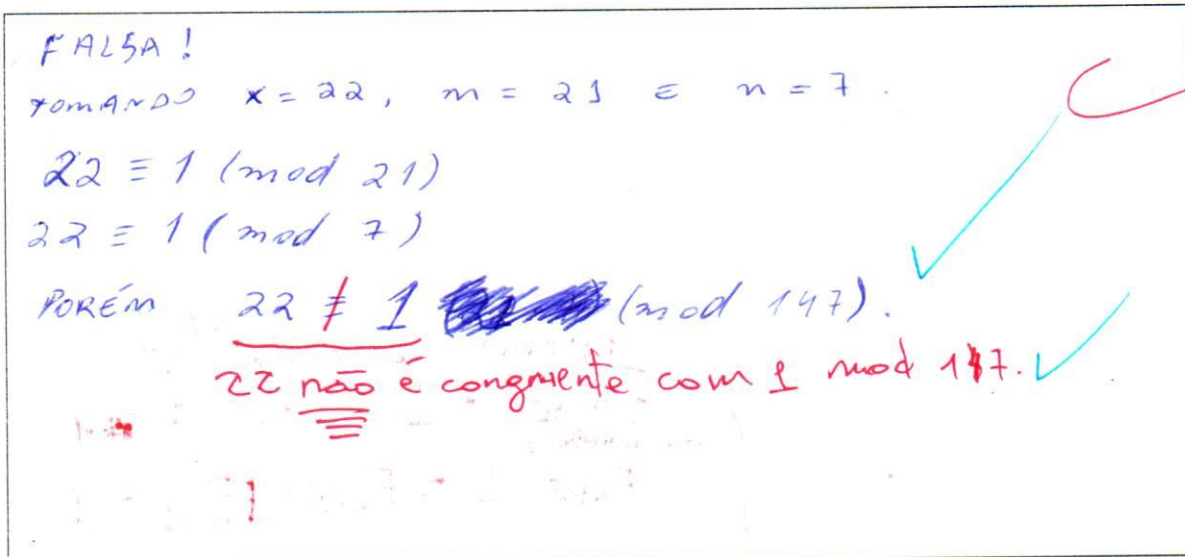 FALSA!
TOMANDO x = 22, m = 21 E n = 7.
22 ≡ 1 (mod 21)
22 ≡ 1 (mod 7)
PORÉM 22 ≢ 1 (mod 147).
22 não é congruente com 1 mod 147.